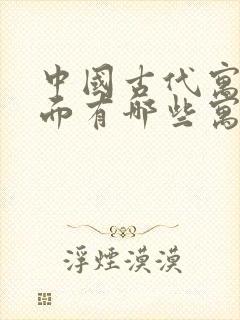 中國古代寓
而有哪些寓
浮煙漠漠